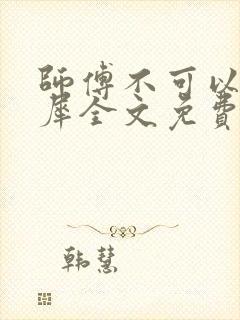 師傅不可以
犀全文免費
韩慧